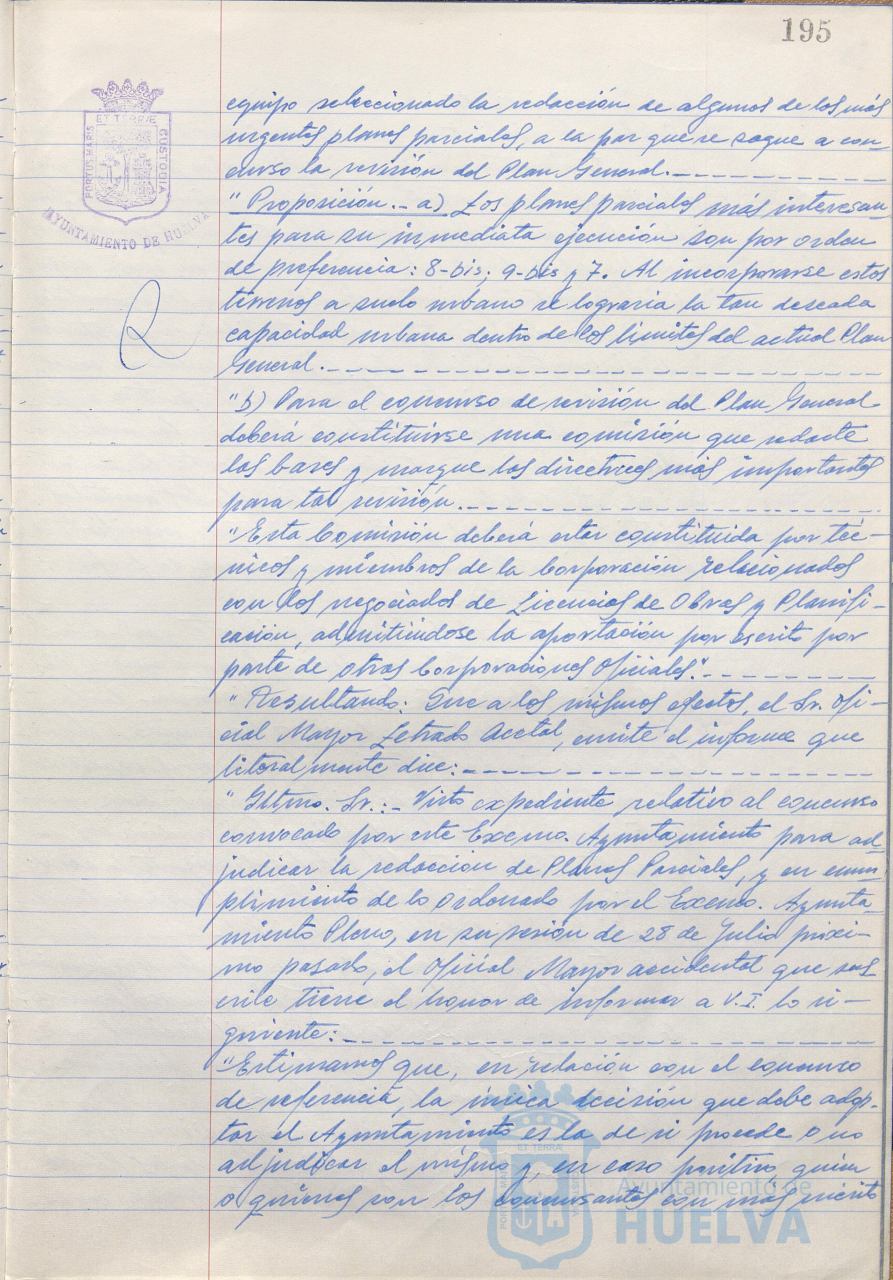 195
ET TERRÆ
PORTUS MARIS
CUSTODIA
AYUNTAMIENTO DE HUELVA
equipo seleccionado la redacción de algunos de los más
urgentes planes parciales, a la par que se saque a con-
curso la revisión del Plan General.
"Proposición.- a) Los planes parciales más interesan-
tes para su inmediata ejecución son por orden
de preferencia: 8-bis; 9-bis y 7. Al incorporarse estos
terrenos a suelo urbano se lograria la tan deseada
capacidad urbana dentro de los limites del actual Plan
General.
"b) Para el concurso de revisión del Plan General
deberá constituirse una comisión que redacte
las bases y marque las directrices más importantes
para tal revisión.
"Esta Comisión deberá estar constituida por téc-
nicos y miembros de la Corporación relacionados
con los negociados de Licencias de Obras y Planifi-
cación, admitiéndose la aportación por escrito por
parte de otras Corporaciones Oficiales".
"Resultando: Que a los mismos efectos, el Sr. Ofi-
cial Mayor Letrado Acctal, emite el informe que
literalmente dice:
"Iltmo. Sr.:- Visto expediente relativo al concurso
convocado por este Excmo. Ayuntamiento para ad-
judicar la redacción de Planes Parciales, y en cum-
plimiento de lo ordenado por el Excmo. Ayunta-
miento Pleno, en su sesión de 28 de Julio próxi-
mo pasado, el Oficial Mayor accidental que sus-
cribe tiene el honor de informar a V.I. lo si-
guiente:
"Estimamos que, en relación con el concurso
de referencia, la única decisión que debe adop-
tar el Ayuntamiento es la de si procede o no
adjudicar el mismo y, en caso positivo, quien
o quienes son los concursantes con más mérito
ET TERRÆ
Ayuntamiento de
HUELVA